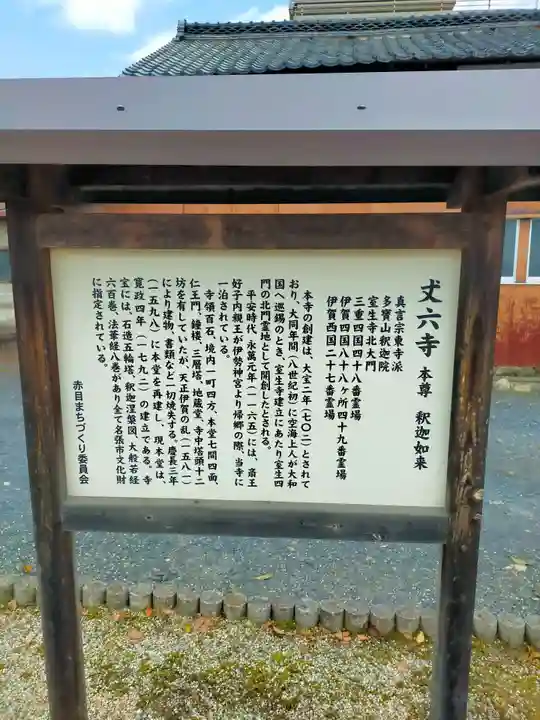 丈六寺 本尊 釈迦如来
真言宗東寺派
多寶山釈迦院
室生寺北大門
三重四国四十八番霊場
伊賀四国八十八ヶ所四十九番霊場
伊賀西国二十七番霊場
本寺の創建は、大宝二年(七〇二)とされて
おり、大同年間(八世紀初)に空海上人が大和
国へ巡錫のとき、室生寺建立にあたり室生四
門の北門霊地として開創したとされる。
平安時代、永萬元年(一一六五)には、斎王
好子内親王が伊勢神宮より帰郷の際、当寺に
一泊されている。
寺領百石、境内一町四方、本堂七間四面、
仁王門、鐘楼、二層塔、地蔵堂、寺中塔頭十二
坊を有していたが、天正伊賀の乱(一五八一)
により建物、書類など一切焼失する。慶長三年
(一五九八)に本堂を再建し、現本堂は、
寛政四年(一七九二)の建立である。寺
宝には、石造五輪塔、釈迦涅槃図、大般若経
六百巻、法華経八巻があり全て名張市文化財
に指定されている。
赤目まちづくり委員会